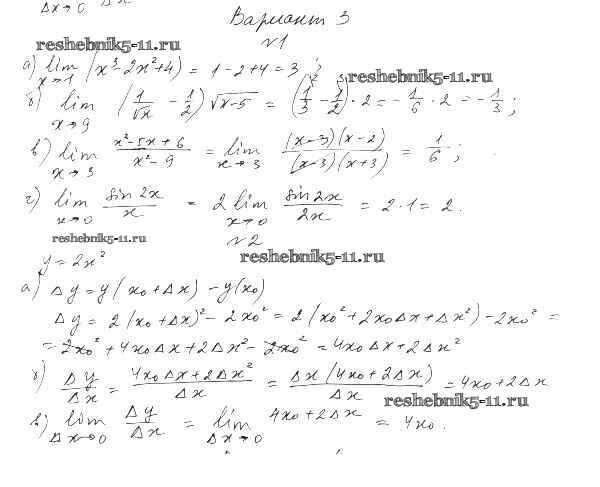 Δx→0 Δx
Вариант 3
№1
reshebnik5-11.ru
а) lim x→1 (x³-2x²+4) = 1-2+4=3;
reshebnik5-11.ru
б) lim x→9 (1/√x - 1/2)√x-5 = (1/3 - 1/2)·2 = -1/6·2 = -1/3;
в) lim x→3 x²-5x+6/x²-9 = lim x→3 (x-3)(x-2)/(x-3)(x+3) = 1/6;
г) lim x→0 sin2x/x = 2 lim x→0 sin2x/2x = 2·1=2.
reshebnik5-11.ru
№2
reshebnik5-11.ru
y=2x²
а) Δy=y(x₀+Δx)-y(x₀)
Δy=2(x₀+Δx)²-2x₀²=2(x₀²+2x₀Δx+Δx²)-2x₀²=
=2x₀²+4x₀Δx+2Δx²-2x₀²=4x₀Δx+2Δx²
б) Δy/Δx = 4x₀Δx+2Δx²/Δx = Δx(4x₀+2Δx)/Δx = 4x₀+2Δx
reshebnik5-11.ru
в) lim Δx→0 Δy/Δx = lim Δx→0 4x₀+2Δx = 4x₀.